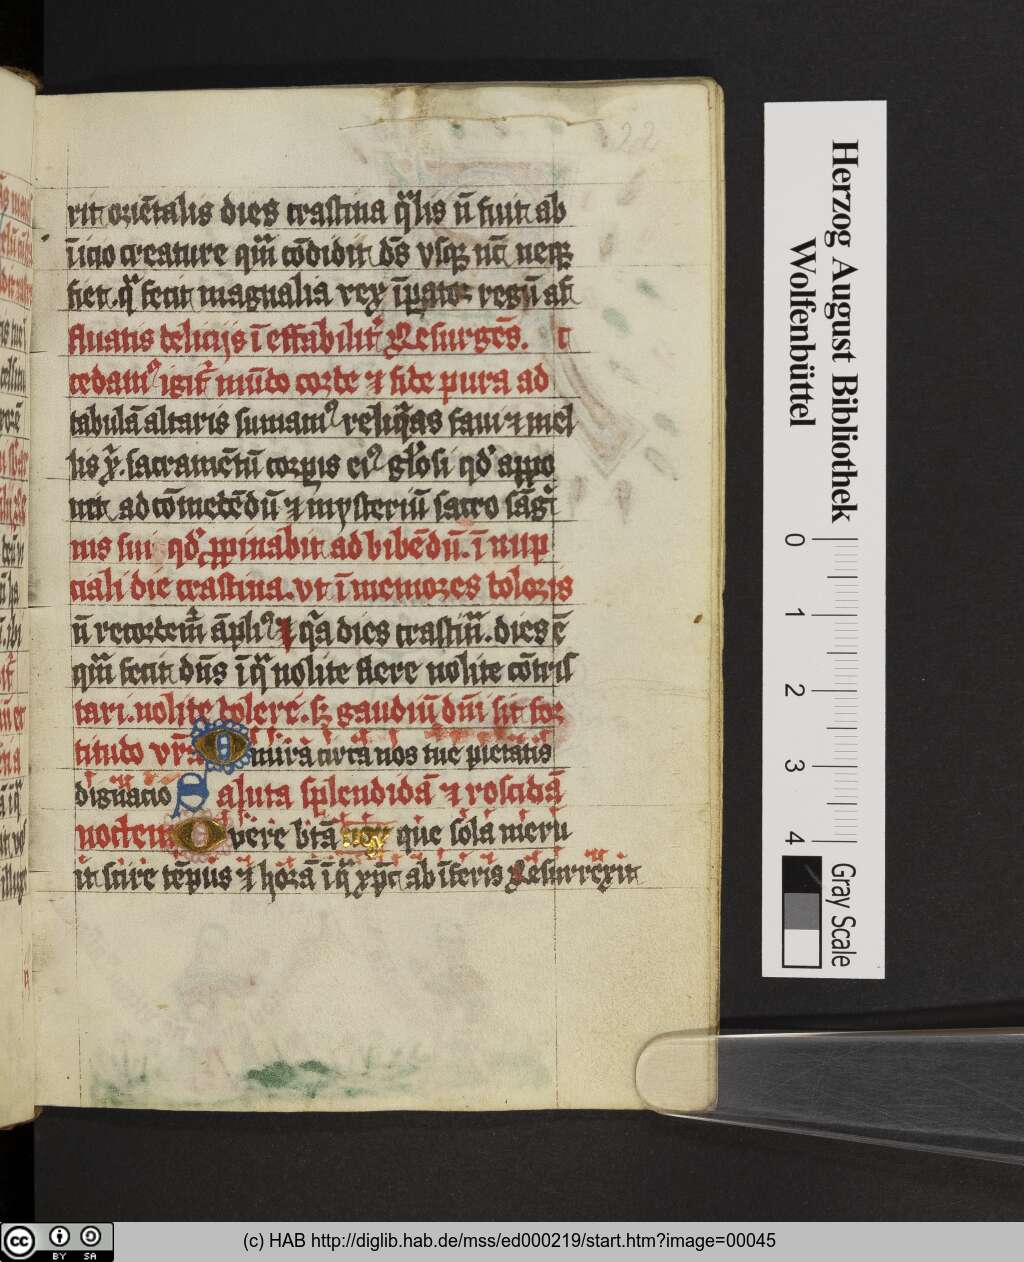 22
rit oriētalis dies crastina q̄lis n̄ fuit ab
īicio creature qm̄ cōdidit ds̄ vsq; nc̄ neq;
fiet. q̄ fecit magnalia rex īpator regū
īeffabilit᷑ Resurgēs.
cedam⁹ igit᷑ mūdo corde ⁊ fide pura ad
tabulā altaris sumam⁹ reliq̄as faui ⁊ mel
lis x̄. sacramētū corpis ei⁹ gl̄osi qd̄ appo
nit ad cōmedēdū ⁊ mysteriū sacro sāgī
nis sui qd̄ ꝓpinabit ad bibēdū. ī nup
ciali die crastina. vt īmemores doloris
n̄ recordem̄ āpli⁹ q̄a dies crastin̄. dies ē
qm̄ fecit dn̄s ī q̄ nolite flere nolite cōtris
tari. nolite dolere. s; gaudiū dn̄i sit for
titudo vr̄a O mira circa nos tue pietatis
dignacio Saluta splendidā ⁊ roscidā
noctem O vere br̄a nox que sola meru
it scire tēpus ⁊ horā ī q̄ xp̄c ab īferis Resurrexit
Herzog August Bibliothek
Wolfenbüttel
0 1 2 3 4
Gray Scale
cc BY SA
(c) HAB http://diglib.hab.de/mss/ed000219/start.htm?image=00045